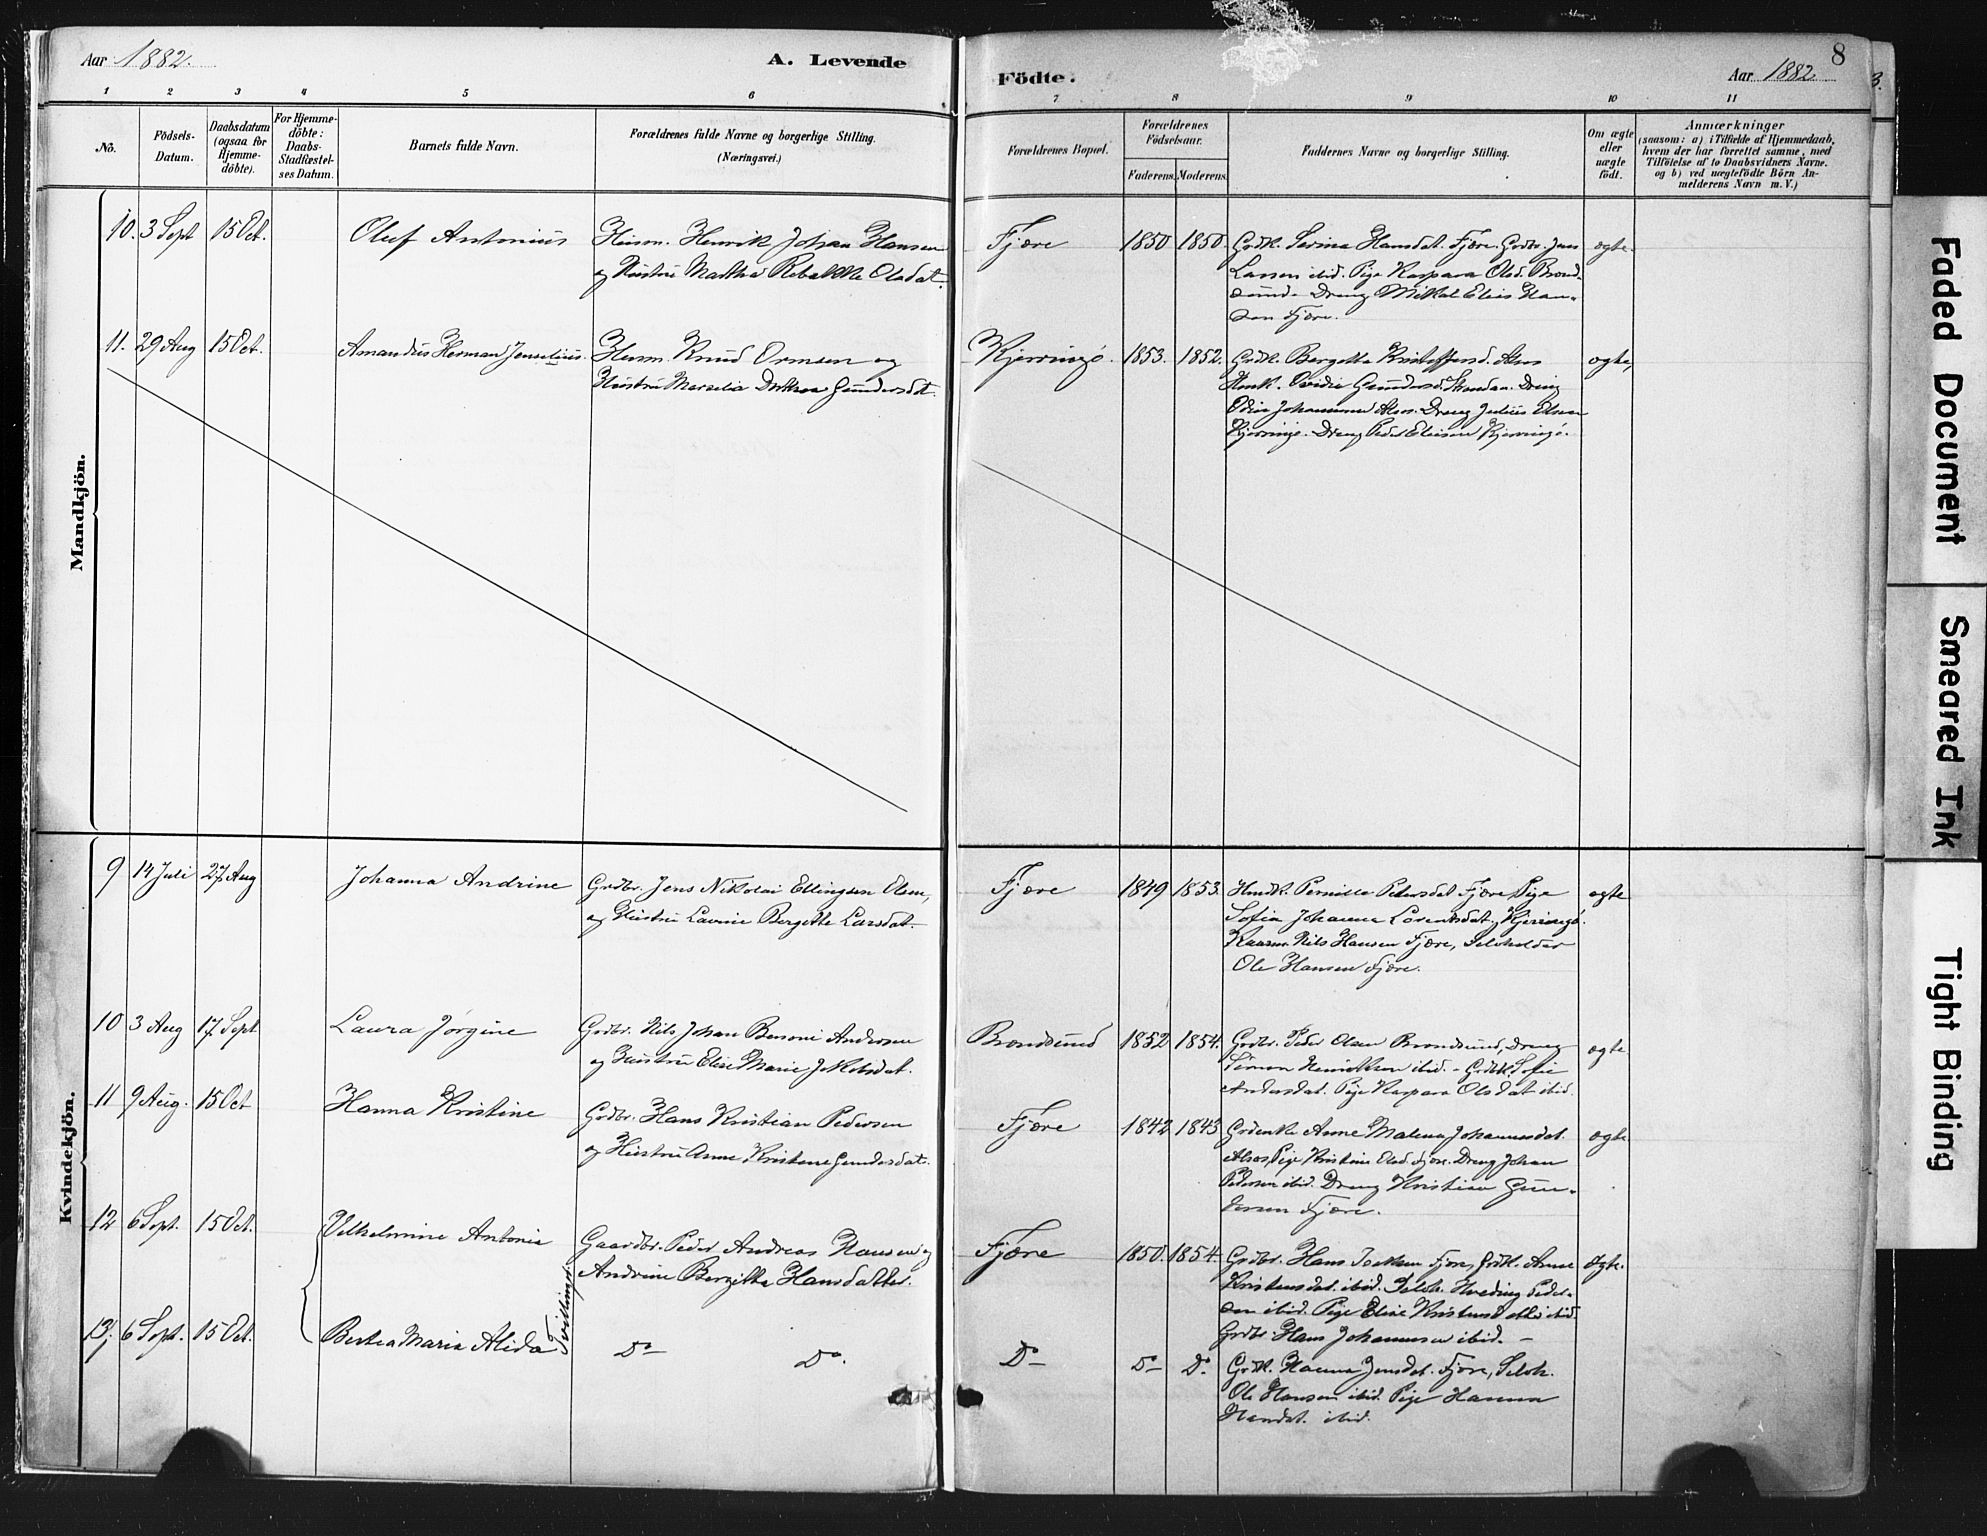 Aar 1882.
A. Levende
Födte.
Aar 1882
8
1 2 3 4 5 6 7 8 9 10 11
No.
Födsels-
Datum.
Daabsdatum
(ogsaa for
Hjemme-
döbte).
For Hjemme-
döbte:
Daabs-
Stadfæstel-
ses Datum.
Barnets fulde Navn.
Forældrenes fulde Navne og borgerlige Stilling.
(Næringsvei.)
Forældrenes Bopæl.
Forældrenes
Födselsaar.
Faderens. Moderens.
Faddernes Navne og borgerlige Stilling.
Om ægte
eller
uægte
födt.
Anmærkninger
(saasom: a) i Tilfælde af Hjemmedaab,
hvem der har forrettet samme, med
Tilföielse af to Daabsvidners Navne.
og b) ved uægtefödte Börn An-
melderens Navn m. V.)
Mandkjön.
10. 3 Sept 15 Oct. Oluf Antonius Husm. Henrik Johan Hansen
og Hustru Martha Rebekka Olsdat.
Fjære 1850 1850. Grdk. Serina Hansdat. Fjære. Grdbr. Jens
Larsen ibid. Pige Kaspara Olsd. Brand-
sund. Dreng Mikal Elias Han-
sen Fjære.
ægte.
11. 29 Aug 15 Oct. Amandus Herman Jenselius. Husm. Knud Ormsen og
Hustru Marselia Gundersdt.
Kjerringø. 1853. 1852. Grdk. Bergitta Kristoffersd. Alsos
Husk. Ovidia Gundersd. Dreng
Odin Johannesen Alsos. Dreng Julius Olsen
Kjerringø. Dreng Peder Eliesen Kjerringø.
ægte,
Kvindekjön.
9 14 Juli 27 Aug Johanna Andrine Grdbr. Jens Nikolai Ellingsen Olsen,
og Hustru Lavine Bergitte Larsdat.
Fjære 1849 1853. Husk. Pernille Pedersdat Fjære, Pige
Sofia Johanna Lorentsdat. Kjerringø.
Kaarm. Nils Hansen Fjære, Selvholder
Ole Hansen Fjære.
ægte
10 3 Aug 17 Sept Laura Jørgine Grdbr. Nils Johan Benoni Andersen
og Hustru Elise Marie Jakobsdat.
Brandsund 1852 1854. Grdbr. Peder Olsen Brandsund, Dreng
Simon Henriksen ibid. - Grdk. Sofie
Andersdat. Pige Kaspara Olsdat ibid.
ægte
11 9 Aug. 15 Oct Hanna Kristine Grdbr. Hans Kristian Pedersen
og Hustru Anne Kristene Gundersdat.
Fjære 1842 1843 Grdenke Anne Malena Johannesdat.
Alsos, Pige Kristine Olsd. Fjære. Dreng Johan
Pedersen ibid. Dreng Kristian Gun-
dersen Fjære.
ægte
12 6 Sept. 15 Oct. Vilhelmine Antonie Gaardbr. Peder Andreas Hansen og
Andrine Bergitte Hansdatter.
Tvillinger
Fjære 1850. 1854. Grdbr. Hans Isaksen Fjære, Grdk. Anne
Kristensdat. ibid. Selvh. Hveding Peder-
sen ibid. Pige Elise Kristensdatter ibid.
Grdbr. Hans Johannesen ibid. -
Ægte.
13. 6 Sept. 15 Oct. Bertea Maria Alida Do Do.
Do Do Do Grdk. Hanna Jensdat. Fjære, Selvh.
Ole Hansen ibid. Pige Hanna
Hansdat. ibid.
Faded Document
Smeared Ink
Tight Binding